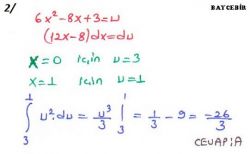 2/
BAYCEBİR
6x²-8x+3=u
(12x-8)dx=du
x=0 için u=3
x=1 için u=1
∫₃¹ u²·du = u³/3 |₃¹ = 1/3 - 9 = -26/3
CEVAP:A